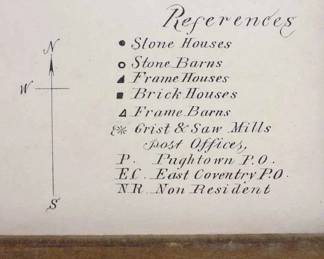 References
N
W
S
Stone Houses
Stone Barns
Frame Houses
Brick Houses
Frame Barns
Grist & Saw Mills
Post Offices,
P. Pughtown P.O.
E.C. East Coventry P.O.
N R Non Resident